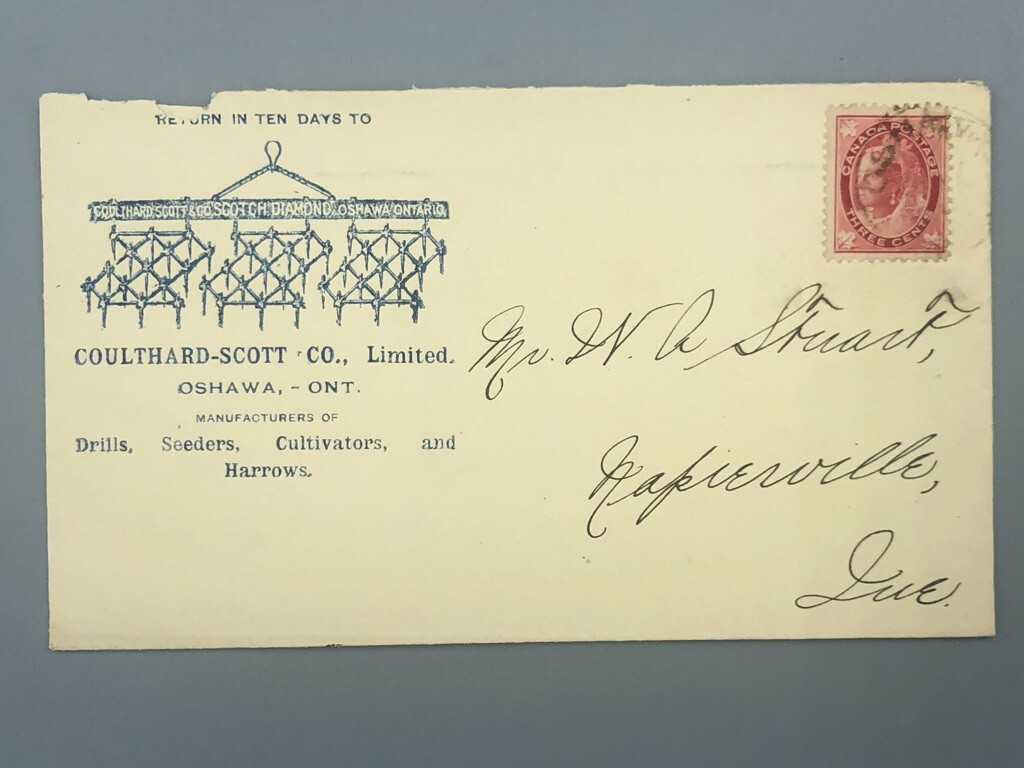 RETURN IN TEN DAYS TO
COULTHARD SCOTT & CO. SCOTCH DIAMOND, OSHAWA ONTARIO.
COULTHARD-SCOTT CO., Limited.
OSHAWA, - ONT.
MANUFACTURERS OF
Drills, Seeders, Cultivators, and
Harrows.
CANADA POSTAGE
THREE CENTS
Mr. W. A. Stuart,
Napierville,
Que.